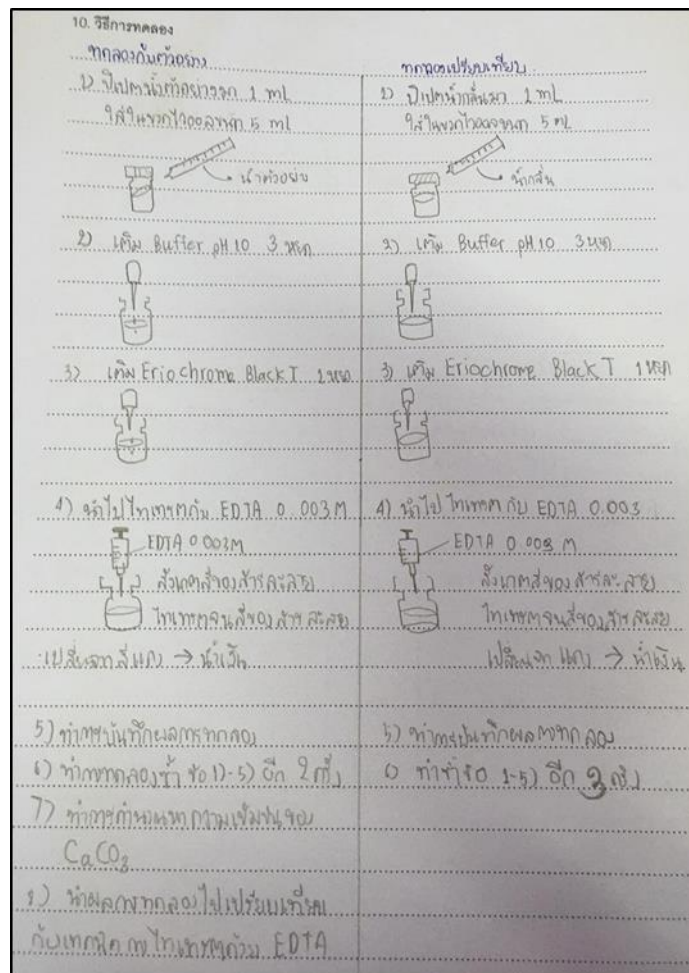 10. วิธีการทดลอง
ทดลองกับตัวอย่าง
1) ปิเปตน้ำตัวอย่างมา 1 ml
ใส่ในขวดไวออลขนาด 5 ml
น้ำตัวอย่าง
2) เติม Buffer pH 10 3 หยด
3) เติม Eriochrome Black T 1 หยด
4) นำไปไทเทรตกับ EDTA 0.003 M
EDTA 0.003 M
สังเกตสีของสารละลาย
ไทเทรตจนสีของสารละลาย
เปลี่ยนจากสีแดง → น้ำเงิน
5) ทำการบันทึกผลการทดลอง
6) ทำการทดลองซ้ำ ข้อ 1)-5) อีก 2 ครั้ง
7) ทำการคำนวณหาความเข้มข้นของ
CaCO3
8) นำผลการทดลองไปเปรียบเทียบ
กับเทคนิคการไทเทรตด้วย EDTA
ทดลองเปรียบเทียบ
1) ปิเปตน้ำกลั่นมา 1 ml
ใส่ในขวดไวออลขนาด 5 ml
น้ำกลั่น
2) เติม Buffer pH 10 3 หยด
3) เติม Eriochrome Black T 1 หยด
4) นำไปไทเทรตกับ EDTA 0.003
EDTA 0.003 M
สังเกตสีของสารละลาย
ไทเทรตจนสีของสารละลาย
เปลี่ยนจาก แดง → น้ำเงิน
5) ทำการบันทึกผลการทดลอง
6) ทำซ้ำข้อ 1-5) อีก 2 ครั้ง